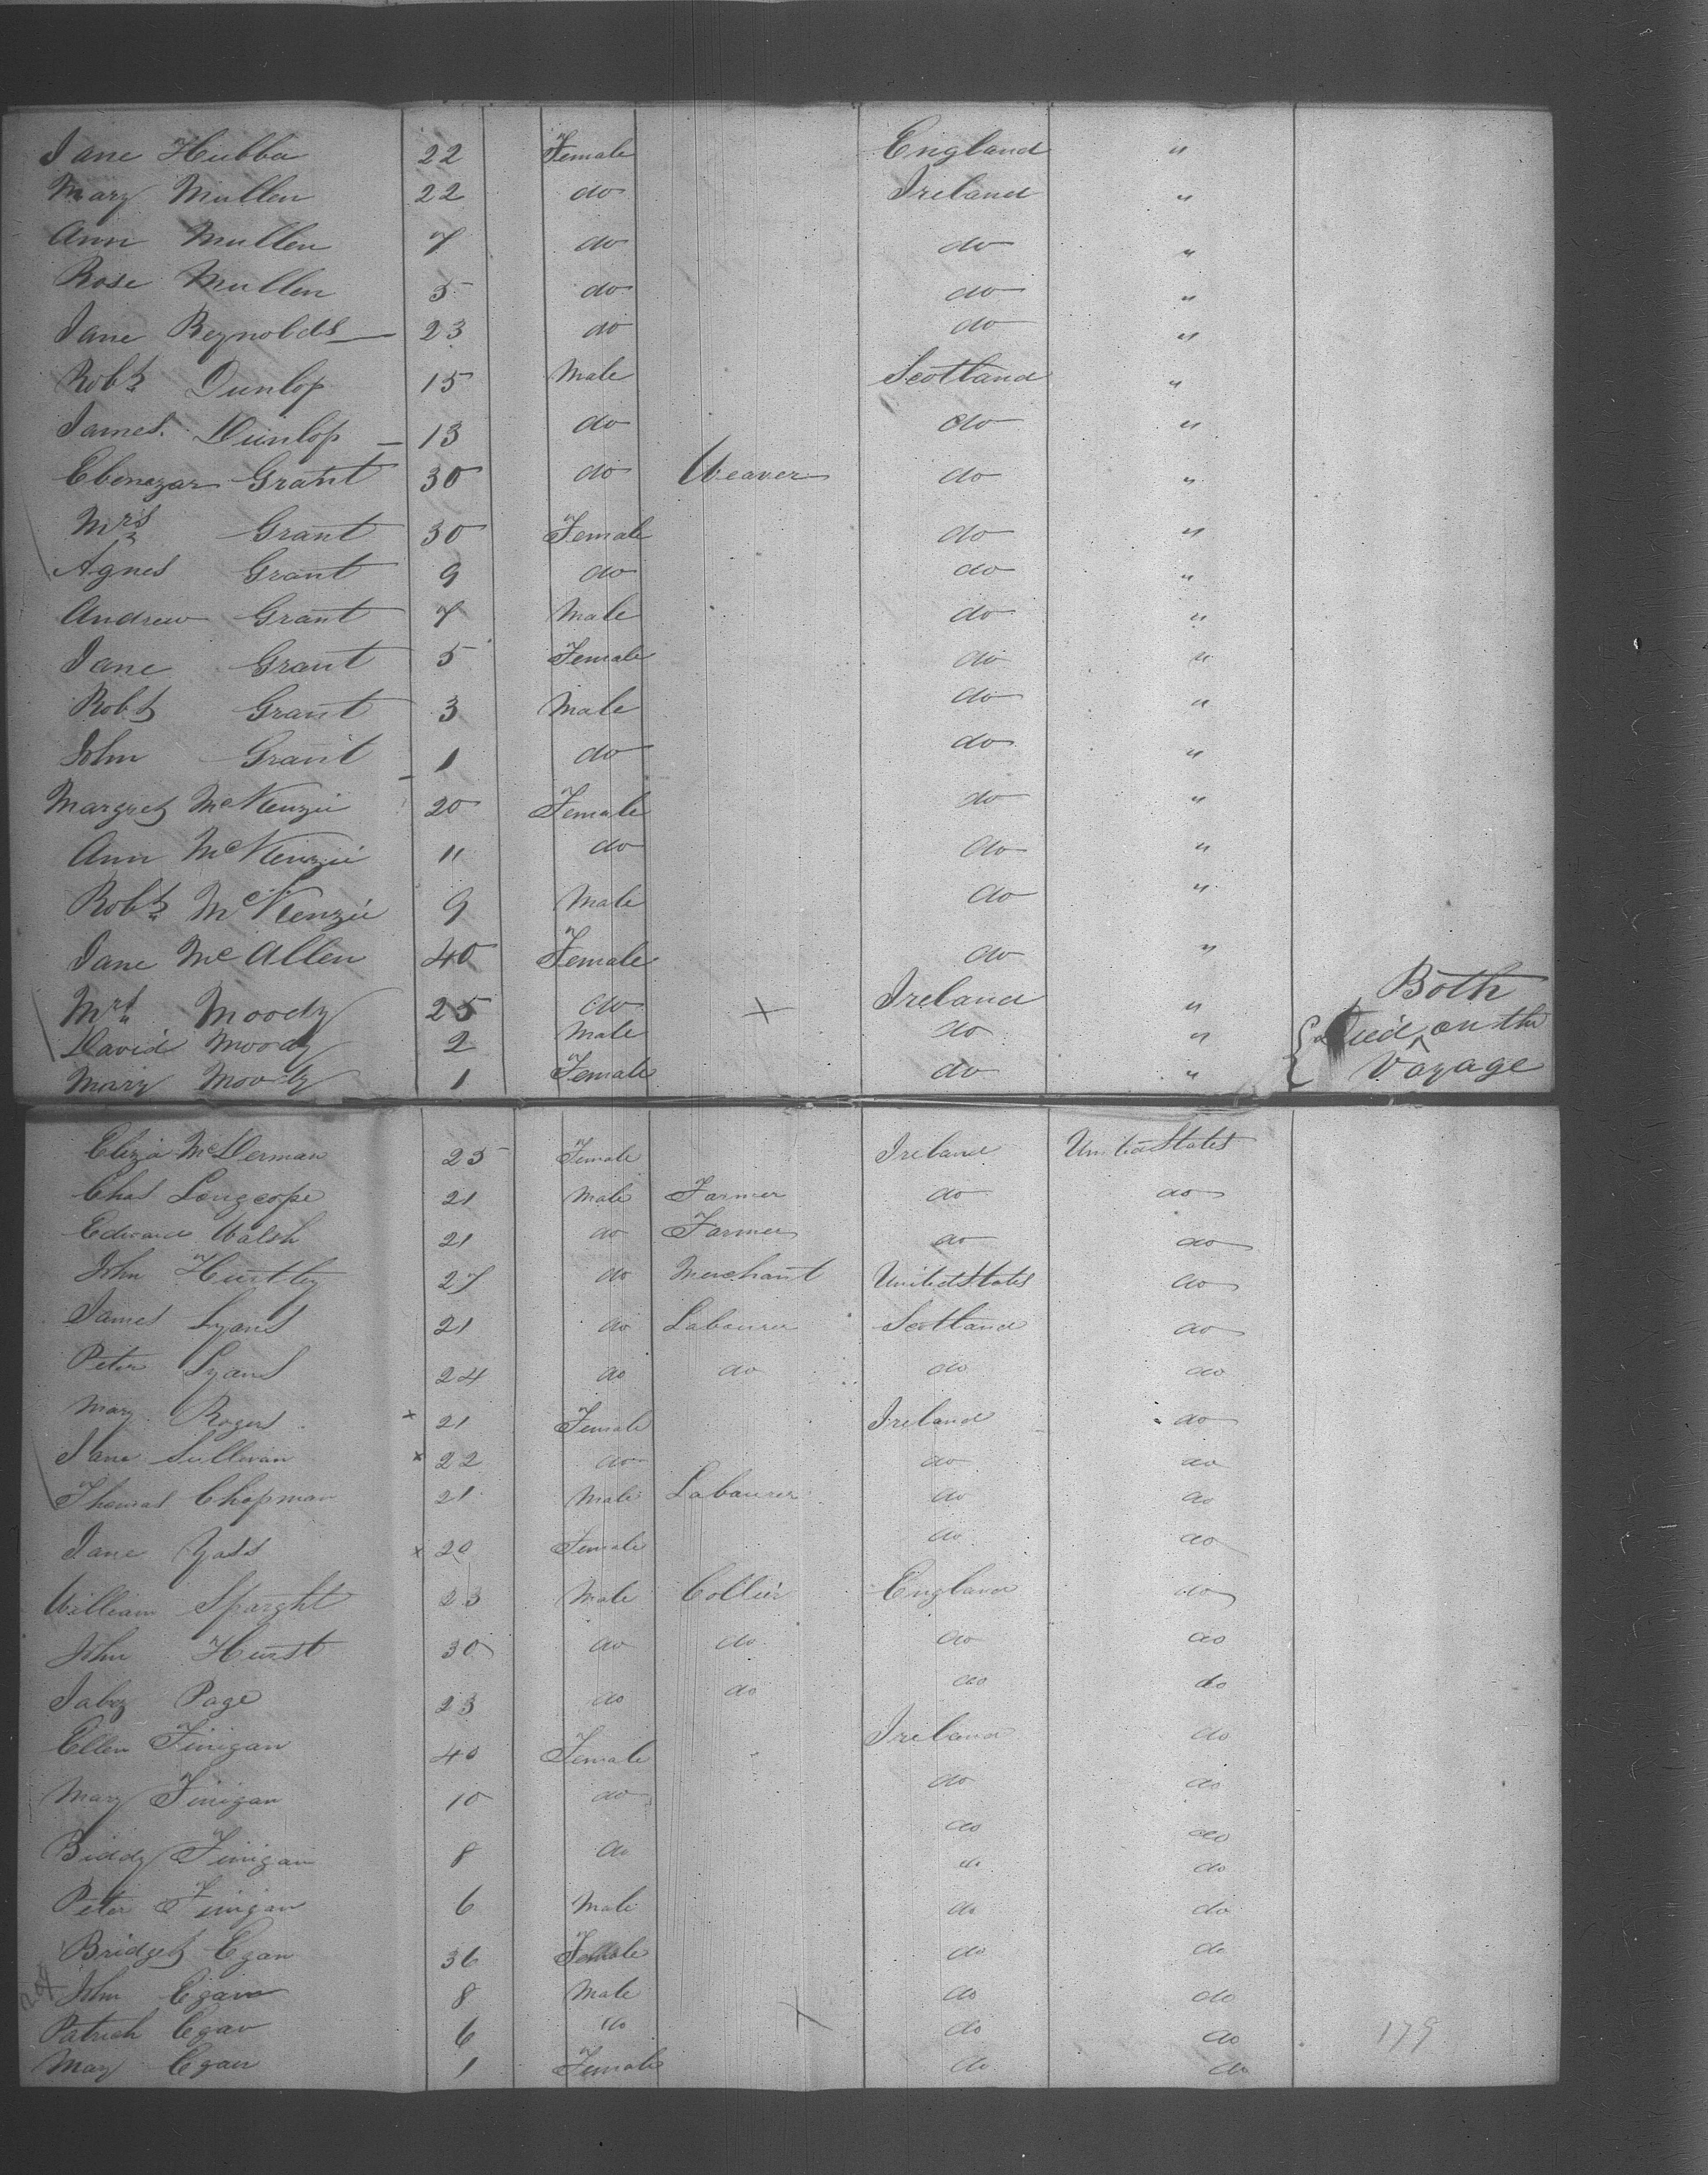 Jane Hubba 22 Female England "
Mary Mullen 22 do Ireland "
Ann Mullen 7 do do "
Rose Mullen 5 do do "
Jane Reynolds 23 do do "
Robt Dunlop 15 Male Scotland "
James Dunlop 13 do do "
Ebenezar Grant 30 do Weaver do "
Mrs Grant 30 Female do "
Agnes Grant 9 do do "
Andrew Grant 7 Male do "
Jane Grant 5 Female do "
Robt Grant 3 Male do "
John Grant 1 do do "
Margret McKenzie 20 Female do "
Ann McKenzie 11 do do "
Robt McKenzie 9 Male do "
Jane McAllen 40 Female do "
Mrs Moody 25 do × Ireland " Both
David Moody 2 Male do " { Died on the
Mary Moody 1 Female do " Voyage
Eliza McDerman 25 Female Ireland United States
Chas Longcope 21 Male Farmer do do
Edward Walsh 21 do Farmer do do
John Huntley 27 do Merchant United States do
James Lyans 21 do Labourer Scotland do
Peter Lyans 24 do do do do
Mary Rogers × 21 Female Ireland do
Jane Sullivan × 22 do do do
Thomas Chapman 21 Male Labourer do do
Jane × 20 Female do do
William Sparght 23 Male Collier England do
John Hurst 30 do do do do
Jabez Page 23 do do do do
Ellen Finigan 40 Female Ireland do
Mary Finigan 10 do do do
Biddy Finigan 8 do do do
Peter Finigan 6 Male do do
Bridget Egan 36 Female do do
John Egan 8 Male do do
Patrick Egan 6 do × do do 179
Mary Egan 1 Female do do